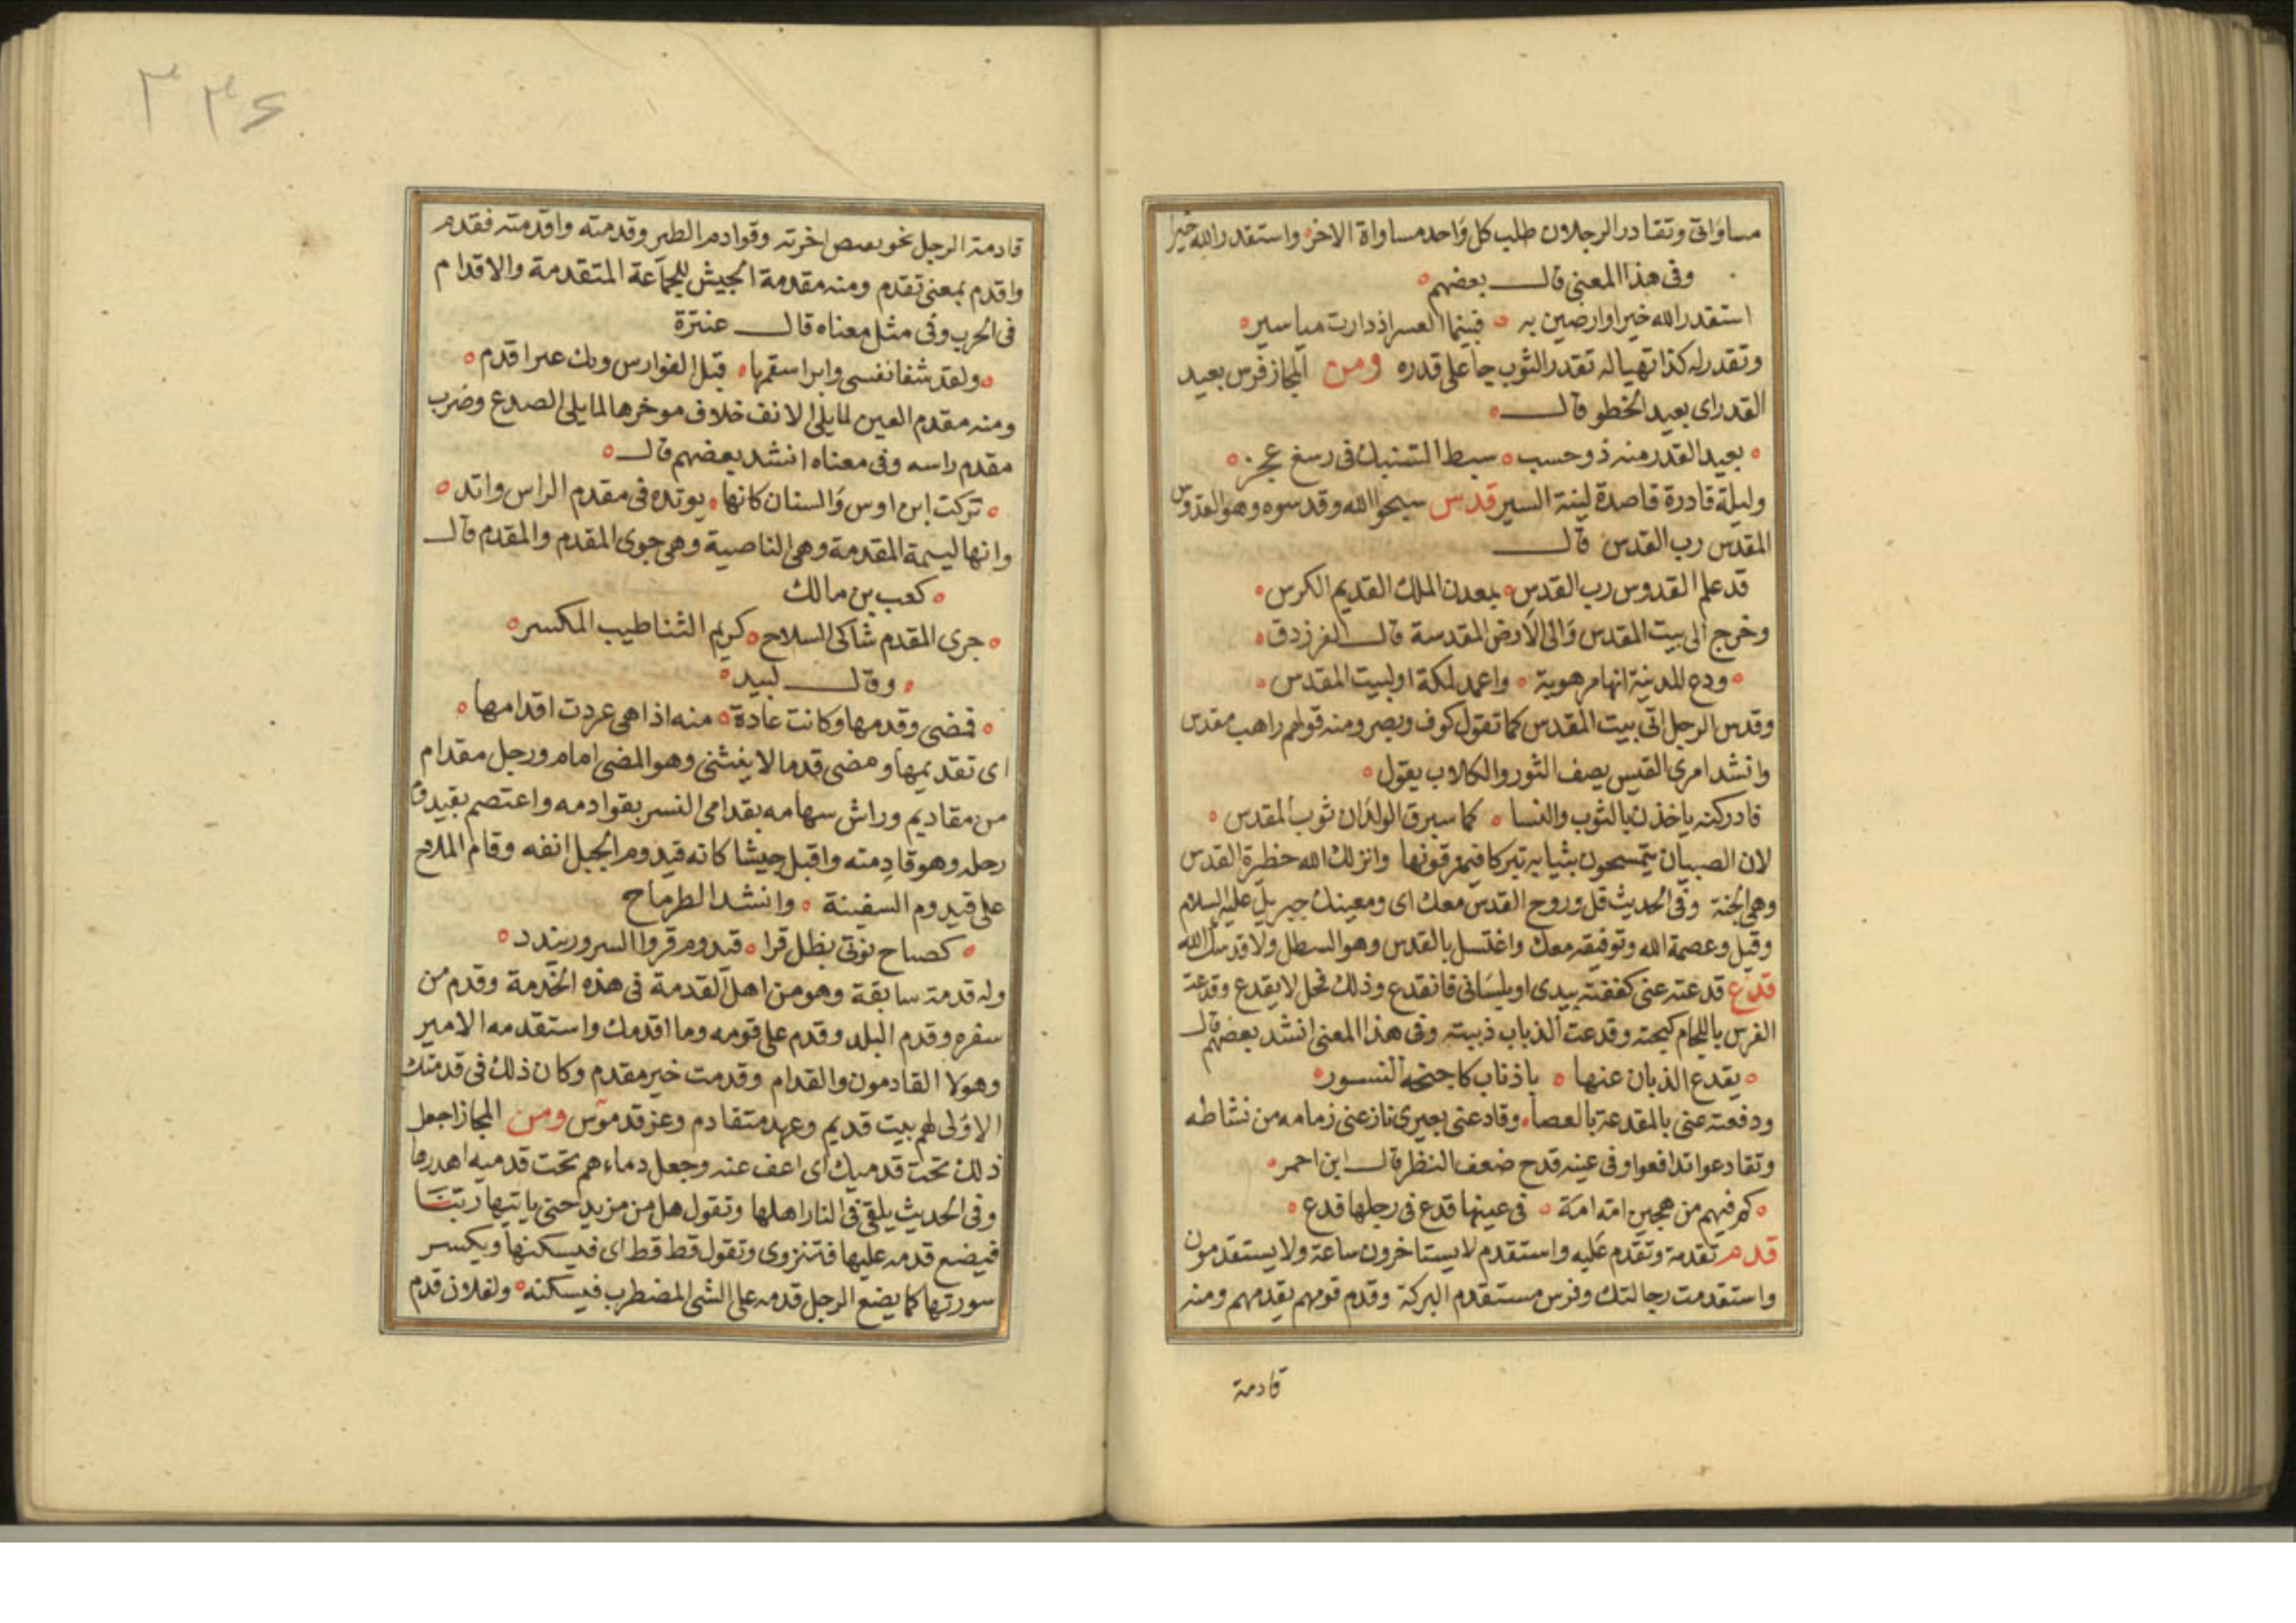 مساواتى وتقادر الرجلان طلب كل واحد مساواة الاخر واستقدر الله خيرا
وفى هذا المعنى قال بعضهم
استقدر الله خيرا وارضين به فبينما العسر اذ دارت مياسير
وتقدر له كذا تهيا له تقدر الثوب جا على قدره ومن المجاز فرس بعيد
القدر اى بعيد الخطو قال
بعيد القدر منه ذو حسب سبط السنبك فى رسغ عجر
وليلة قادرة قاصدة لينة السير قدس سبحوا الله وقدسوه وهو القدوس
المقدس رب القدس قال
قد علم القدوس رب القدس بمعدن الملك القديم الكرس
وخرج الى بيت المقدس والى الارض المقدسة قال الفرزدق
ودع المدينة انها مرهوبة واعمد لمكة او لبيت المقدس
وقدس الرجل اتى بيت المقدس كما تقول كوف وبصر ومنه قولهم راهب مقدس
وانشد امرى القيس يصف الثور والكلاب يقول
فادركته ياخذن بالثوب والنسا كما سبرق الولدان ثوب المقدس
لان الصبيان يتمسحون بثيابه تبركا فيمزقونها وانزلك الله حظيرة القدس
وهى الجنة وفى الحديث قل وروح القدس معك اى ومعينك جبريل عليه السلام
وقيل وعصمة الله وتوفيقه معك واغتسل بالقدس وهو السطل ولا قدسك الله
قدع قدعته عنى كففته بيدى او بلسانى فانقدع وذلك فحل لا يقدع وقدعة
الفرس باللجام كبحته وقدعت الذباب ذببته وفى هذا المعنى انشد بعضهم قال
يقدع الذبان عنها باذناب كاجنحة النسور
ودفعته عنى بالمقدعة بالعصا وقادعنى بعيرى نازعنى زمامه من نشاطه
وتقادعوا تدافعوا وفى عينه قدح ضعف النظر قال ابن احمر
كم فيهم من هجين امه امة فى عينها قدع فى رجلها فدع
قدم تقدمة وتقدم عليه واستقدم لا يستاخرون ساعة ولا يستقدمون
واستقدمت رجالتك وفرس مستقدم البركة وقدم قومهم يقدمهم ومنه
قادمة
٣٣٤
قادمة الرجل نحو بعض اخرته وقوادم الطير وقدمته واقدمته فقدم
واقدم بمعنى تقدم ومنه مقدمة الجيش للجماعة المتقدمة والاقدام
فى الحرب وفى مثل معناه قال عنترة
ولقد شفا نفسى وابرا سقمها قيل الفوارس ويك عبرا قدم
ومنه مقدم العين لما يلى الانف خلاف موخرها لما يلى الصدع وضرب
مقدم راسه وفى معناه انشد بعضهم قال
تركت ابن اوس والسنان كانها يوتده فى مقدم الراس واتد
وانها ليمة المقدمة وهى الناصية وهى جوى المقدم والمقدم قال
كعب بن مالك
جرى المقدم شاكى السلاح كريم الثنا طيب المكسر
وقال لبيد
فمضى وقدمها وكانت عادة منه اذا هى عردت اقدامها
اى تقديمها ومضى قدما لا ينثنى وهو المضى امام ورجل مقدام
من مقاديم وراش سهامه بقدامى النسر بقوادمه واعتصم بقيدوم
رحله وهو قادمته واقبل جيشا كانه قيدوم الجبل انفه وقام الملاح
على قيدوم السفينة وانشد الطرماح
كصباح نوتى يظل قرا قيدوم قروا السرور يندد
وله قدمة سابقة وهو من اهل القدمة فى هذه الخدمة وقدم من
سفره وقدم البلد وقدم على قومه وما اقدمك واستقدمه الامير
وهولا القادمون والقدام وقدمت خير مقدم وكان ذلك فى قدمتك
الاولى لهم بيت قديم وعهد متقادم وعز قدموس ومن المجاز اجعل
ذلك تحت قدميك اى اعف عنه وجعل دماءهم تحت قدميه اهدرها
وفى الحديث يلقى فى النار اهلها وتقول هل من مزيد حتى ياتيها ربنا
فيضع قدمه عليها فتنزوى وتقول قط قط اى فيسكنها ويكسر
سورتها كما يضع الرجل قدمه على الشى المضطرب فيسكنه ولفلان قدم